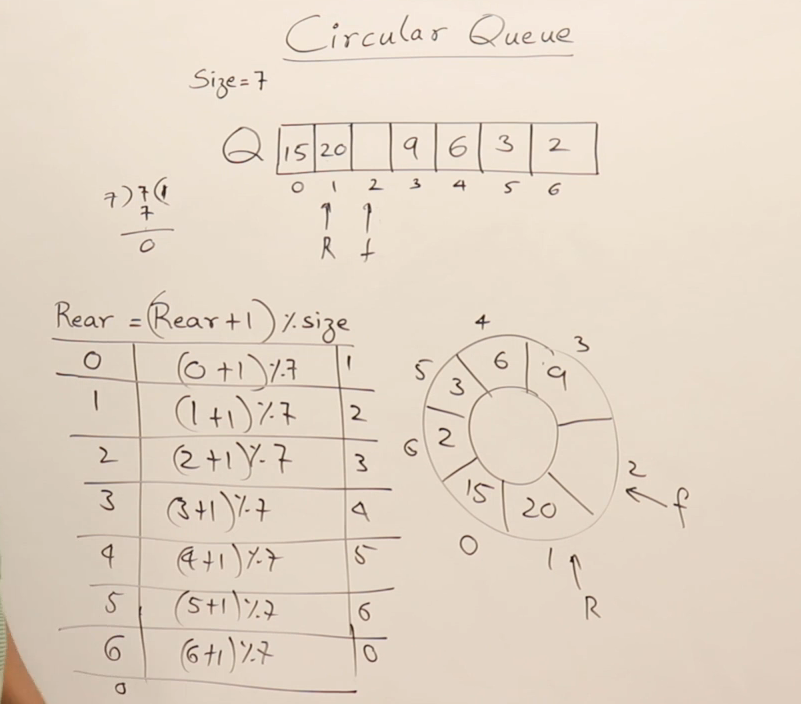 Circular Queue
Size=7
Q 15 20 9 6 3 2
0 1 2 3 4 5 6
7)7(1
7
0
R f
Rear = (Rear+1) % size
0 (0+1)%7 1
1 (1+1)%7 2
2 (2+1)%7 3
3 (3+1)%7 4
4 (4+1)%7 5
5 (5+1)%7 6
6 (6+1)%7 0
0
4 3
5 6 9
3
6 2
2
15 20 f
0 1
R